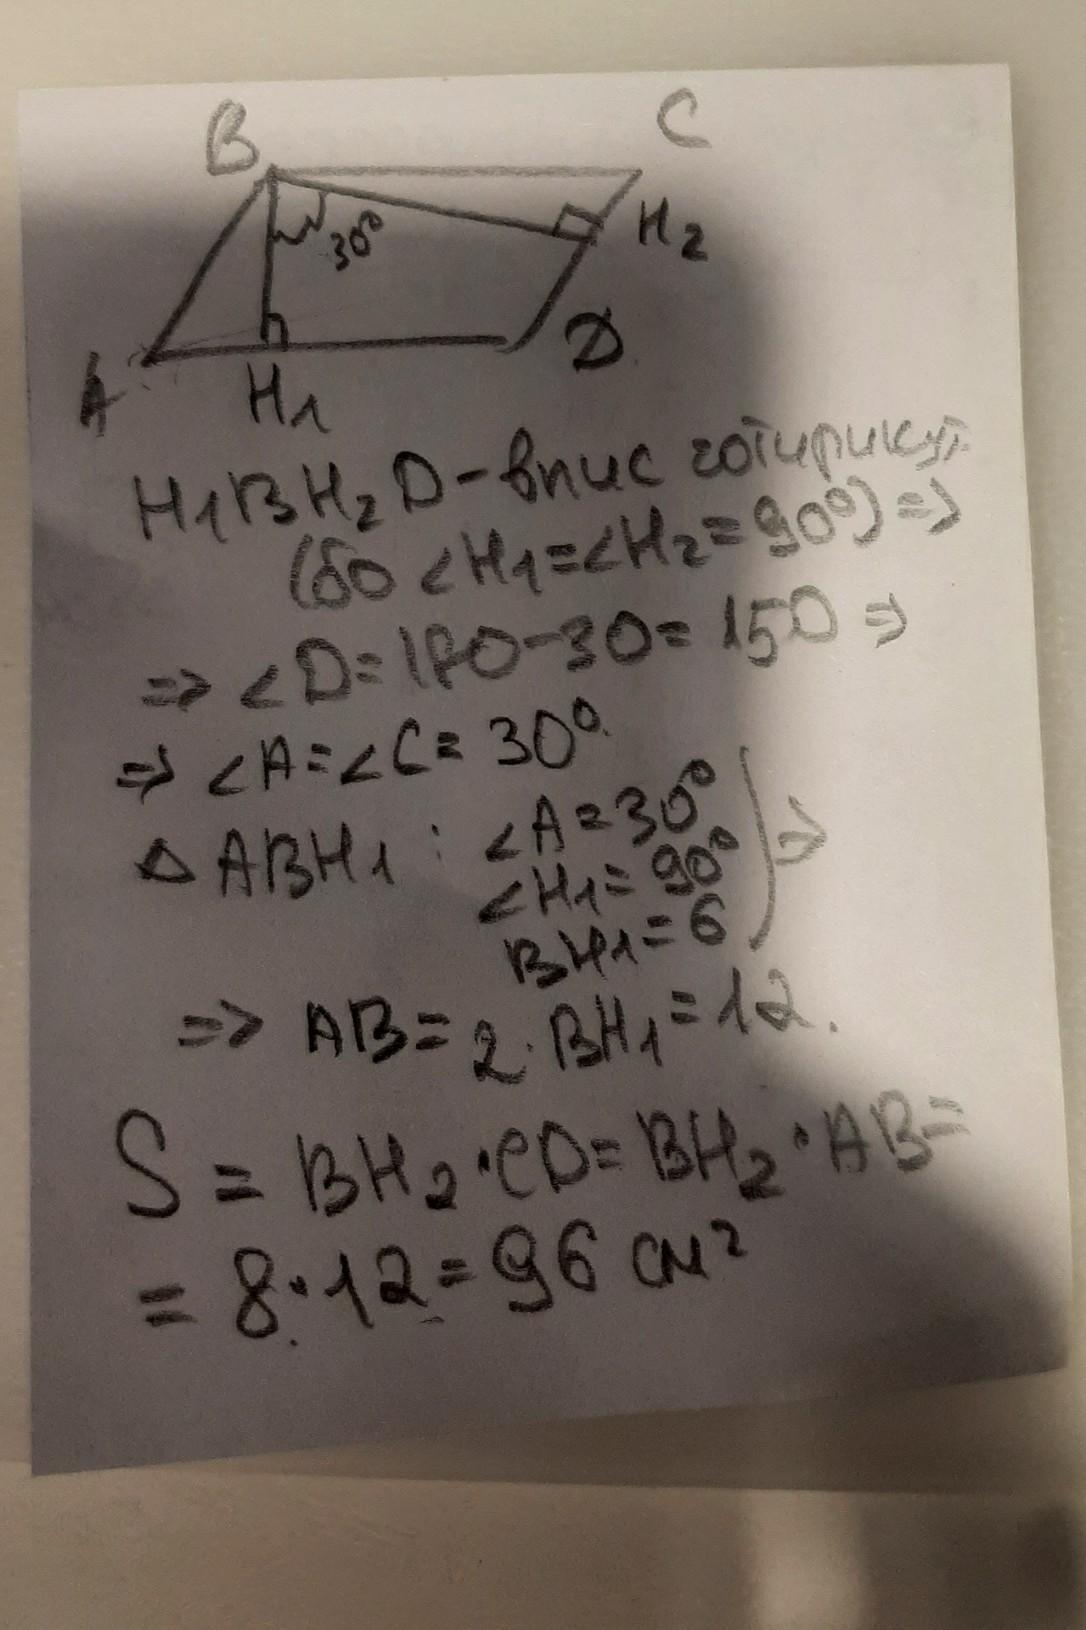 B
C
30°
H2
A
H1
D
H1BH2D-впис чотирикут.
(бо <H1=<H2=90°) =>
=> <D=180-30=150 =>
=> <A=<C=30°.
Δ ABH1 : <A=30°
<H1=90°
BH1=6
=>
=> AB=2·BH1=12.
S = BH2·CD=BH2·AB=
= 8·12=96 см²